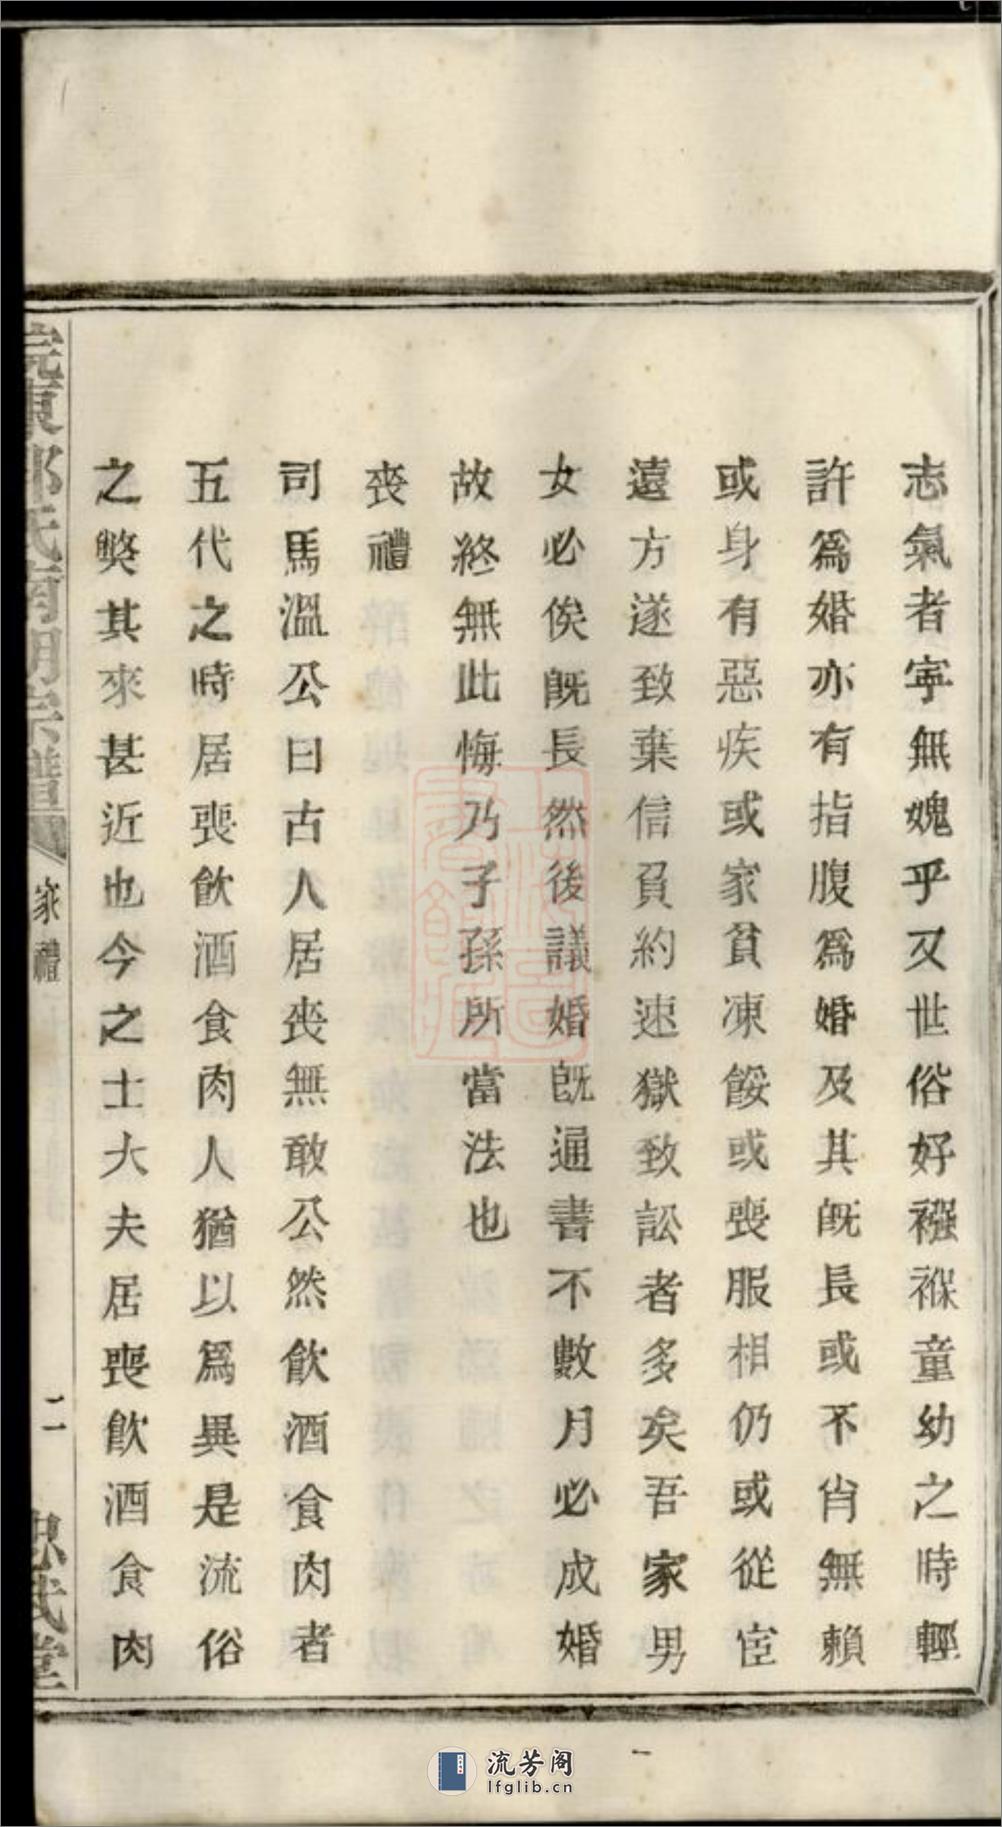 志氣者寧無媿乎又世俗好襁褓童幼之時輕
許爲婚亦有指腹爲婚及其旣長或不肖無賴
或身有惡疾或家貧凍餒或喪服相仍或從宦
遠方遂致棄信負約速獄致訟者多矣吾家男
女必俟旣長然後議婚旣通書不數月必成婚
故終無此悔乃子孫所當法也
喪禮
司馬溫公曰古人居喪無敢公然飮酒食肉者
五代之時居喪飮酒食肉人猶以爲異是流俗
之獘其來甚近也今之士大夫居喪飮酒食肉
家禮
二
流芳阁
lfglib.cn